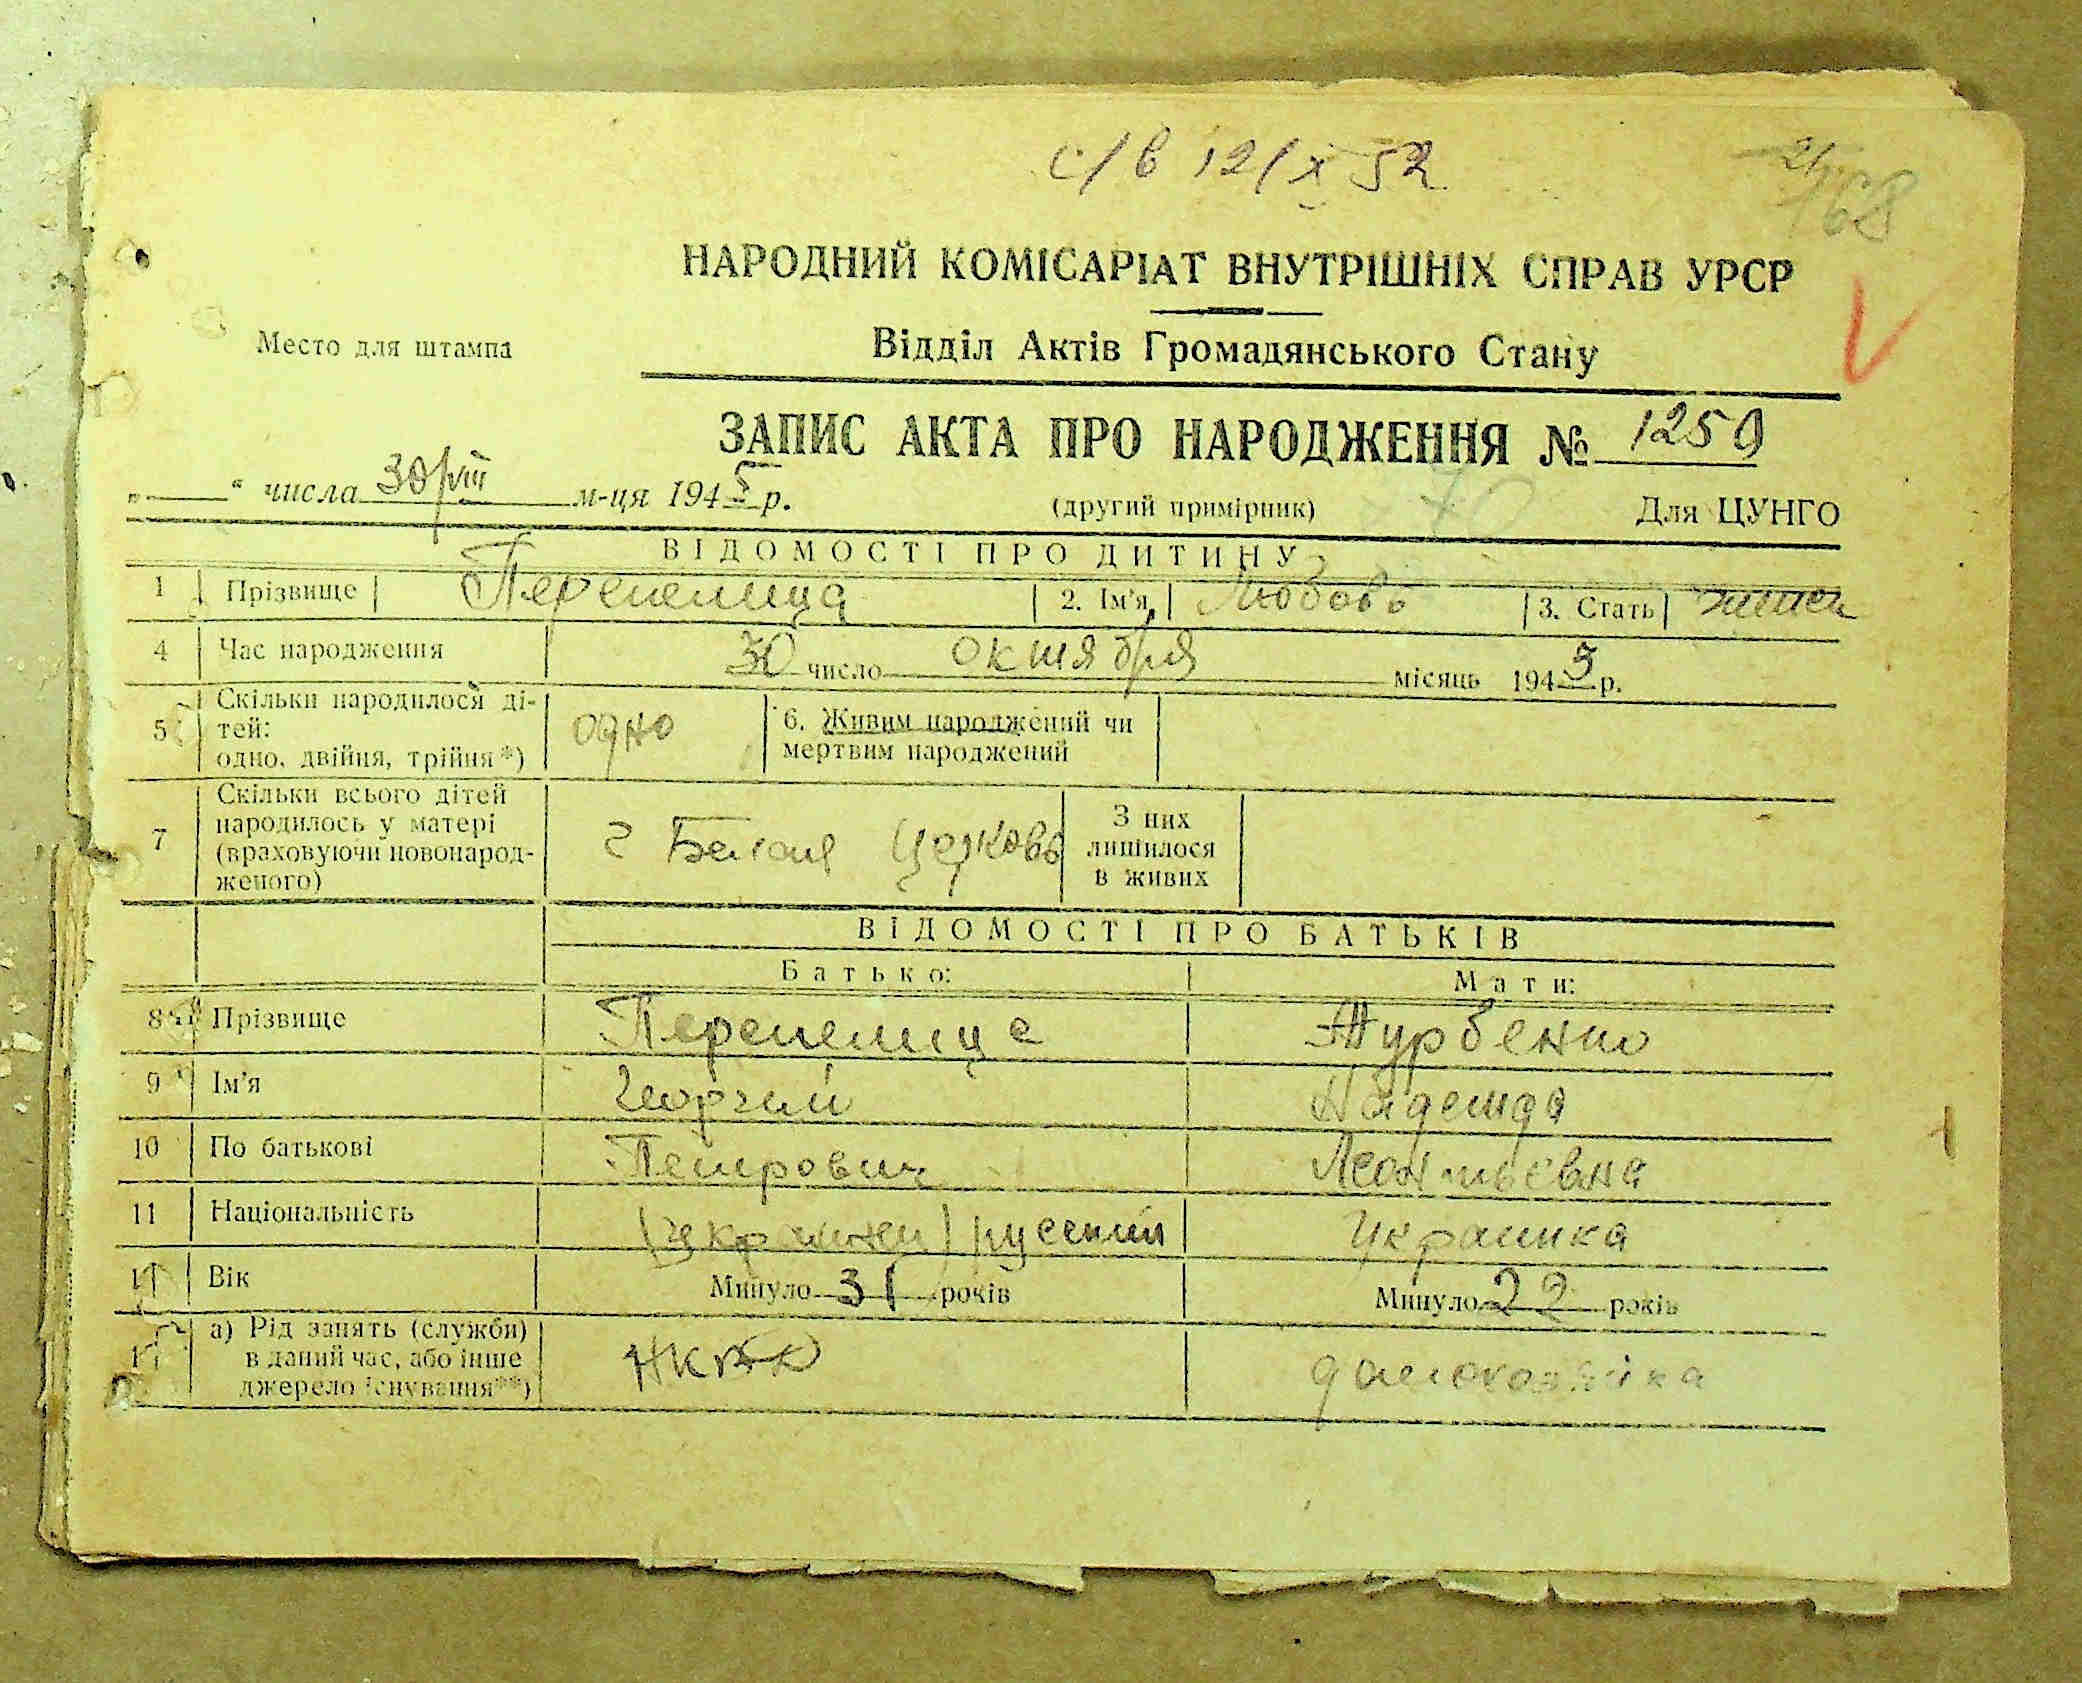 с/в 12/x 52
2/168
НАРОДНИЙ КОМІСАРІАТ ВНУТРІШНІХ СПРАВ УРСР
Место для штампа
Відділ Актів Громадянського Стану
ЗАПИС АКТА ПРО НАРОДЖЕННЯ № 1250
„ “ числа 30/VIII м-ця 1945 р.
(другий примірник)
Для ЦУНГО
ВІДОМОСТІ ПРО ДИТИНУ
1 Прізвище Перепелица 2. Ім'я Любовь 3. Стать женск
4 Час народження 30 число октября місяць 1945 р.
5 Скільки народилося ді-
тей:
одно, двійня, трійня*)
одно
6. Живим народжений чи
мертвим народжений
7 Скільки всього дітей
народилось у матері
(враховуючи новонарод-
женого)
г Белая Церковь
З них
лишилося
в живих
ВІДОМОСТІ ПРО БАТЬКІВ
Батько: Мати:
8 Прізвище Перепелице Журбенко
9 Ім'я Георгий Надежда
10 По батькові Петрович Леонтьевна
11 Національність (украинец) русский Украинка
Вік Минуло 31 років Минуло 22 років
а) Рід занять (служби)
в даний час, або інше
джерело існування**)
домохозяйка